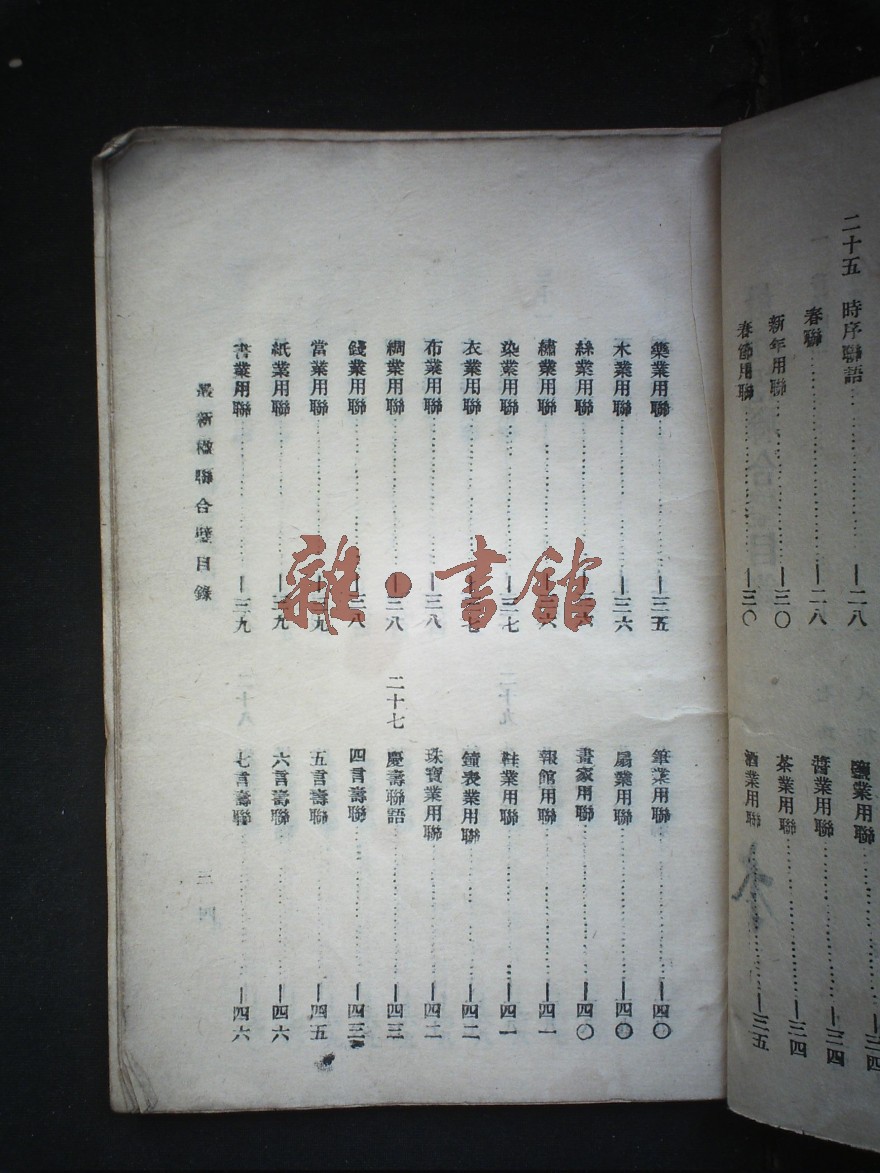 二十五　時序聯語……—二八
春聯……—二八
新年用聯……—三〇
春節用聯……—三〇
鹽業用聯……—三四
醬業用聯……—三四
茶業用聯……—三四
酒業用聯……—三五
藥業用聯……—三五
木業用聯……—三六
絲業用聯……—三六
繡業用聯……—三六
染業用聯……—三七
衣業用聯……—三七
布業用聯……—三八
綢業用聯……—三八
錢業用聯……—三八
當業用聯……—三九
紙業用聯……—三九
書業用聯……—三九
筆業用聯……—四〇
扇業用聯……—四〇
畫家用聯……—四〇
報館用聯……—四一
鞋業用聯……—四一
鐘表業用聯……—四二
珠寶業用聯……—四二
二十七　慶壽聯語……—四三
四言壽聯……—四三
五言壽聯……—四五
六言壽聯……—四六
七言壽聯……—四六
最新楹聯合璧目錄
雜·書館